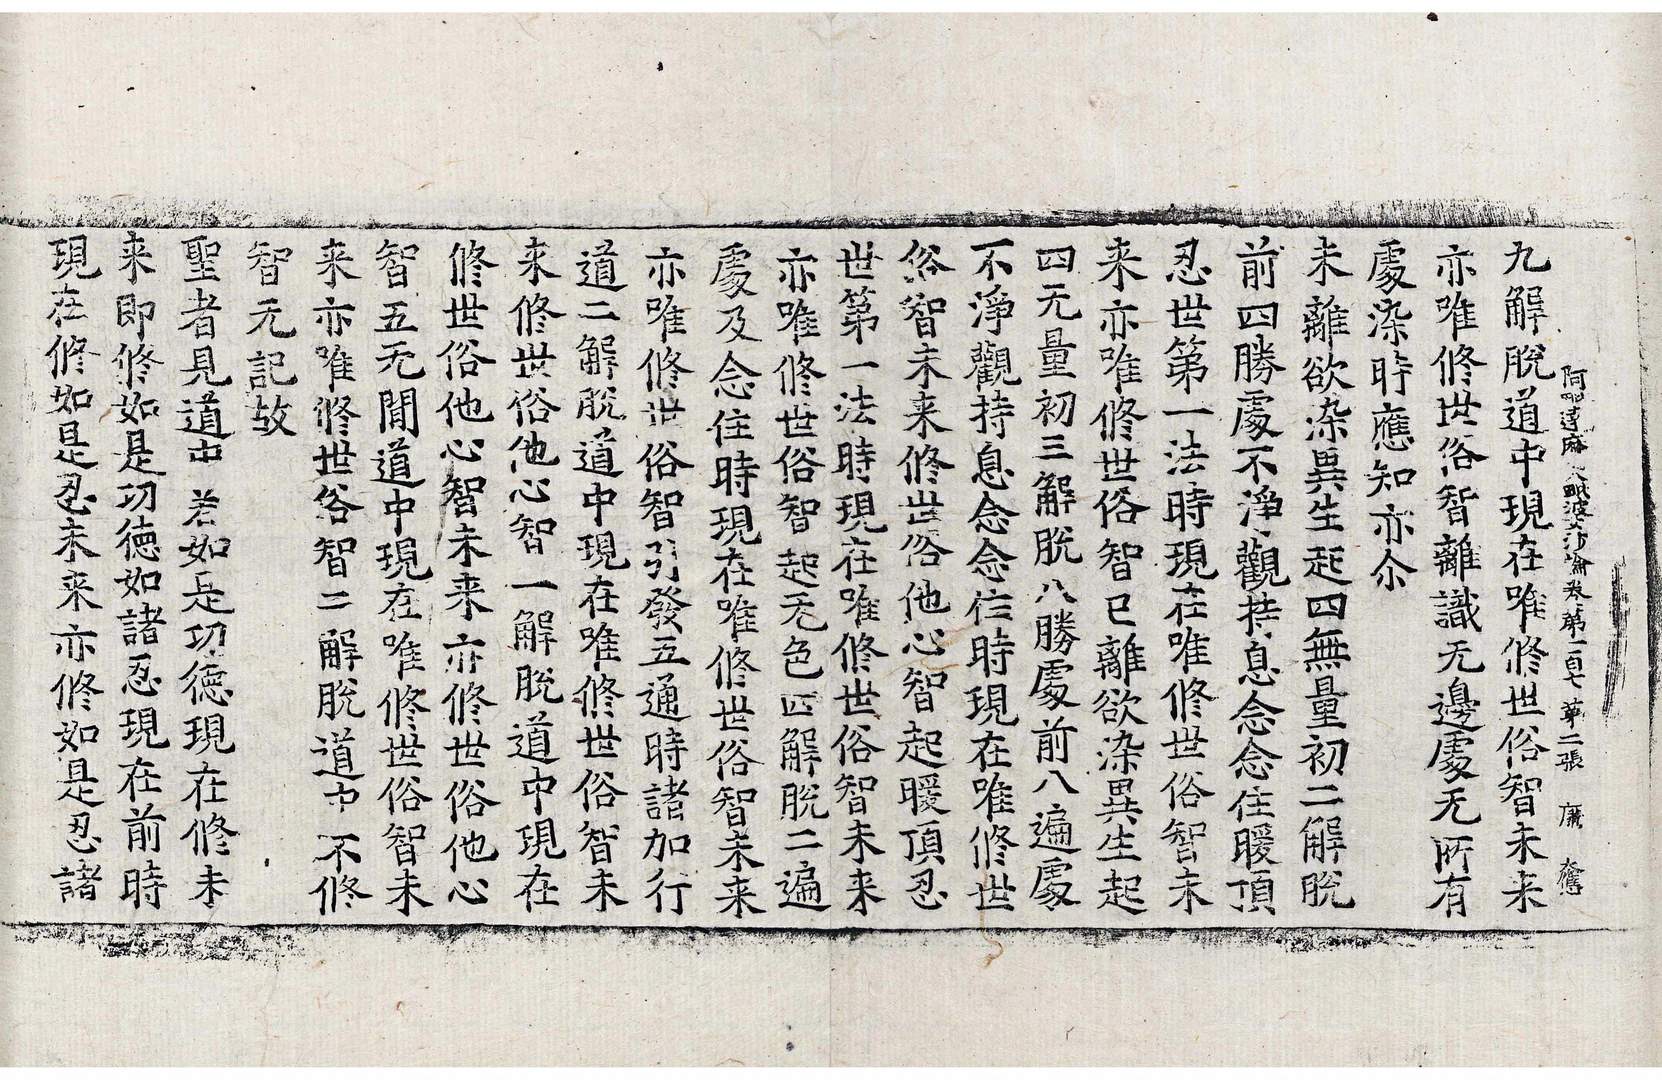 阿毗達磨大毗婆沙論卷第一百七 第二張 廉
九解脫道中現在唯修世俗智未來
亦唯修世俗智離識无邊處无所有
處染時應知亦尒
未離欲染異生起四無量初二解脫
前四勝處不淨觀持息念念住暖頂
忍世第一法時現在唯修世俗智未
来亦唯修世俗智已離欲染異生起
四无量初三解脫八勝處前八遍處
不淨觀持息念念住時現在唯修世
俗智未来修世俗他心智起暖頂忍
世第一法時現在唯修世俗智未来
亦唯修世俗智起无色四解脫二遍
處及念住時現在唯修世俗智未来
亦唯修世俗智引發五通時諸加行
道二解脫道中現在唯修世俗智未
来修世俗他心智一解脫道中現在
修世俗他心智未来亦修世俗他心
智五无間道中現在唯修世俗智未
来亦唯修世俗智二解脫道中不修
智无記故
聖者見道中若如是功德現在修未
来即修如是功德如諸忍現在前時
現在修如是忍未来亦修如是忍諸